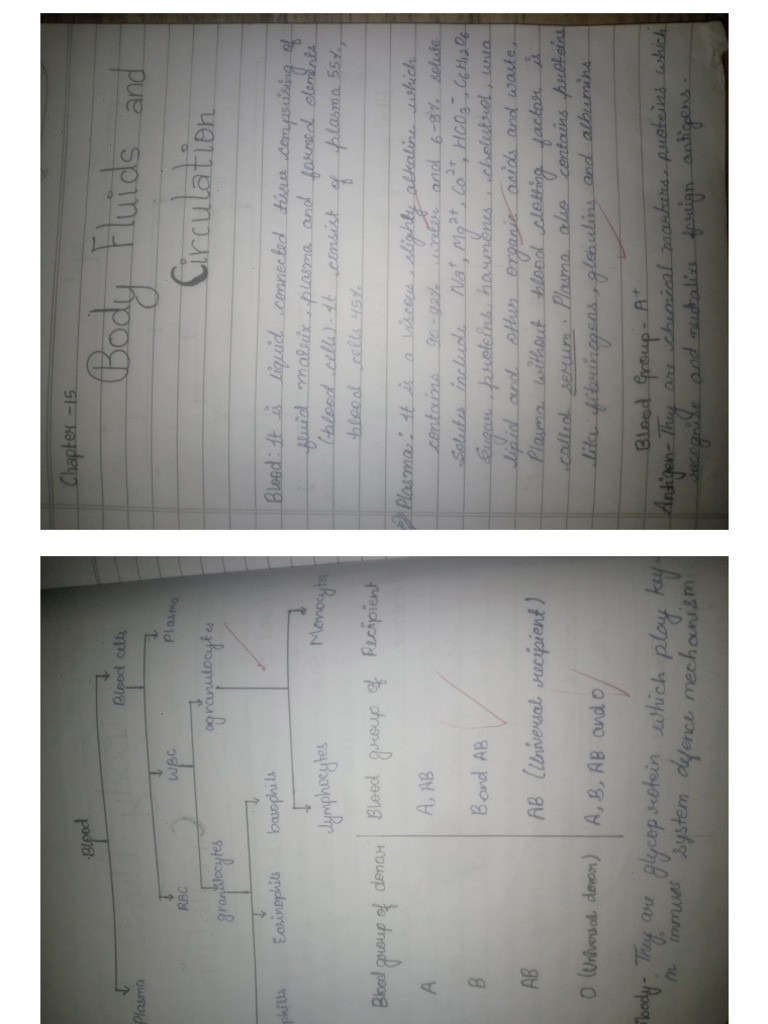 Chapter -15
Body Fluids and
Circulation
Blood: It is liquid connected tissue comprising of
fluid matrix, plasma and formed elements
(blood cells). It consist of plasma 55%,
blood cells 45%.
Plasma: It is a viscous, slightly alkaline which
contains 90-92% water and 6-8% solute
Solutes include Na⁺, Mg²⁺, Ca²⁺, HCO₃⁻, C₆H₁₂O₆
Sugar, proteins, harmones, cholestrol, urea
lipid and other organic acids and waste,
Plasma without blood clotting factor is
called serum. Plasma also contains proteins
like fibrinogens, globulins and albumins
Blood Group - A⁺
Antigen - They are chemical markers, proteins which
recognise and neutralise foreign antigens.
Blood
Plasma Blood cells
RBC WBC Plasma
granulocytes agranulocytes
phills Eosinophils basophils
lymphocytes Monocyte
Blood group of donar Blood group of Recipient
A A, AB
B B and AB
AB AB (Universal recipient)
O (Universal donar) A, B, AB and O
body - They are glycoprotein which play key
in immune system defence mechanism